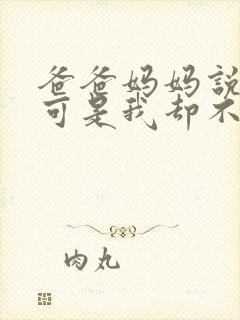 爸爸妈妈說
可是我却不
肉丸